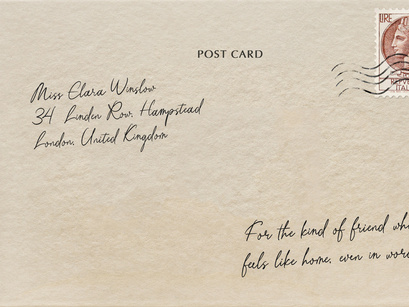 POST CARD
LIRE
Miss Clara Winslow
34 Linden Row, Hampstead
London, United Kingdom
ITAL
For the kind of friend who
feels like home, even in